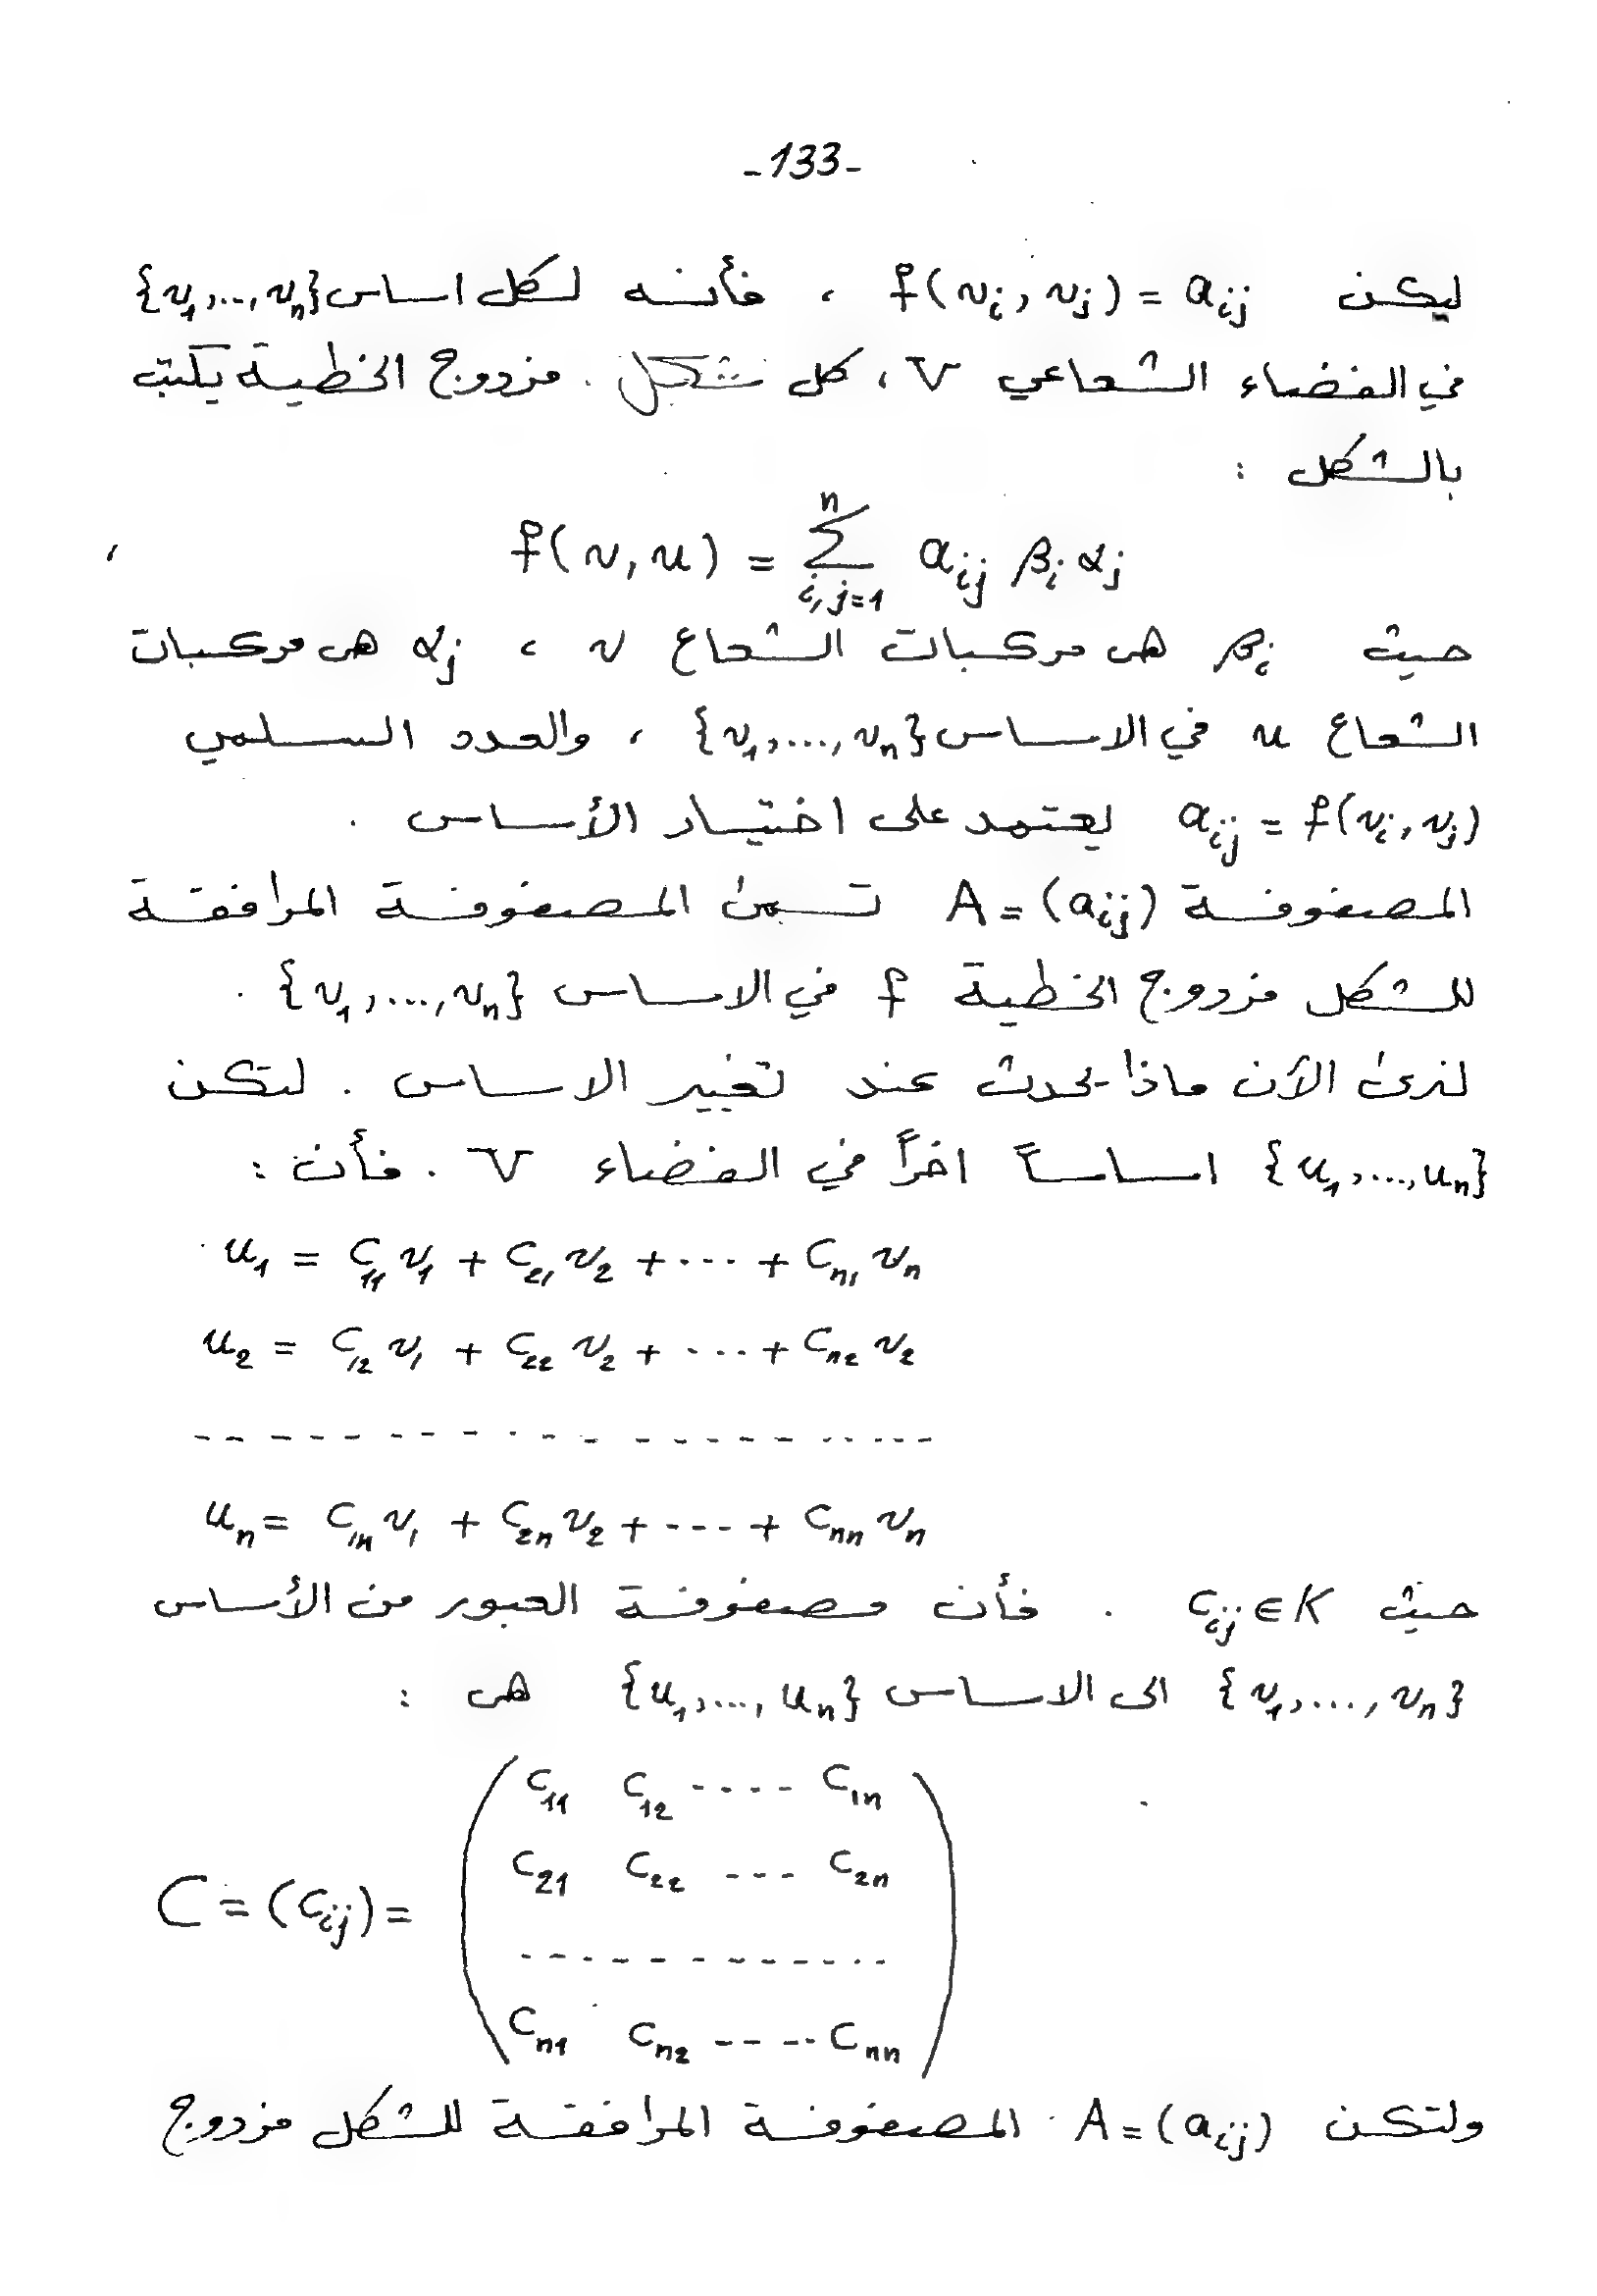 -133-
ليكن f(v_i, v_j) = a_ij ، فأنه لكل اساس {v_1,...,v_n}
في الفضاء الشعاعي V ، كل شكل مزدوج الخطية يكتب
بالشكل :
f(v, u) = \sum_{i,j=1}^{n} a_ij β_i α_j
حيث β_i هي مركبات الشعاع v ، α_j هي مركبات
الشعاع u في الاساس {v_1,...,v_n} ، والعدد السلمي
a_ij = f(v_i, v_j) يعتمد على اختيار الأساس .
المصفوفة A = (a_ij) تسمى المصفوفة المرافقة
للشكل مزدوج الخطية f في الاساس {v_1,...,v_n} .
لنرى الآن ماذا يحدث عند تغيير الاساس . لتكن
{u_1,...,u_n} اساساً اخراً في الفضاء V . فأن :
u_1 = C_11 v_1 + C_21 v_2 + ··· + C_n1 v_n
u_2 = C_12 v_1 + C_22 v_2 + ··· + C_n2 v_2
- - - - - - - - - - - - - - - - - - - -
u_n = C_1n v_1 + C_2n v_2 + --- + C_nn v_n
حيث C_ij ∈ K . فأن مصفوفة العبور من الأساس
{v_1,...,v_n} الى الاساس {u_1,...,u_n} هي :
C_11 C_12 ---- C_1n
C_21 C_22 --- C_2n
C = (C_ij) =
- - - - - - - - - - -
C_n1 C_n2 ---- C_nn
ولتكن A = (a_ij) المصفوفة المرافقة للشكل مزدوج